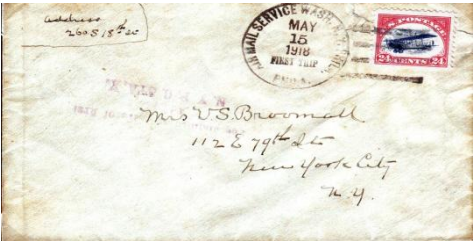 address
260 S 18th St
AIR MAIL SERVICE WASH. N.Y. PHILA.
MAY
15
1918
FIRST TRIP
PHILA.
U.S. POSTAGE
24 CENTS 24
N. Y. P. O. STA.
Mrs V. S. Broomall
112 E 79th St
New York City
N. Y.